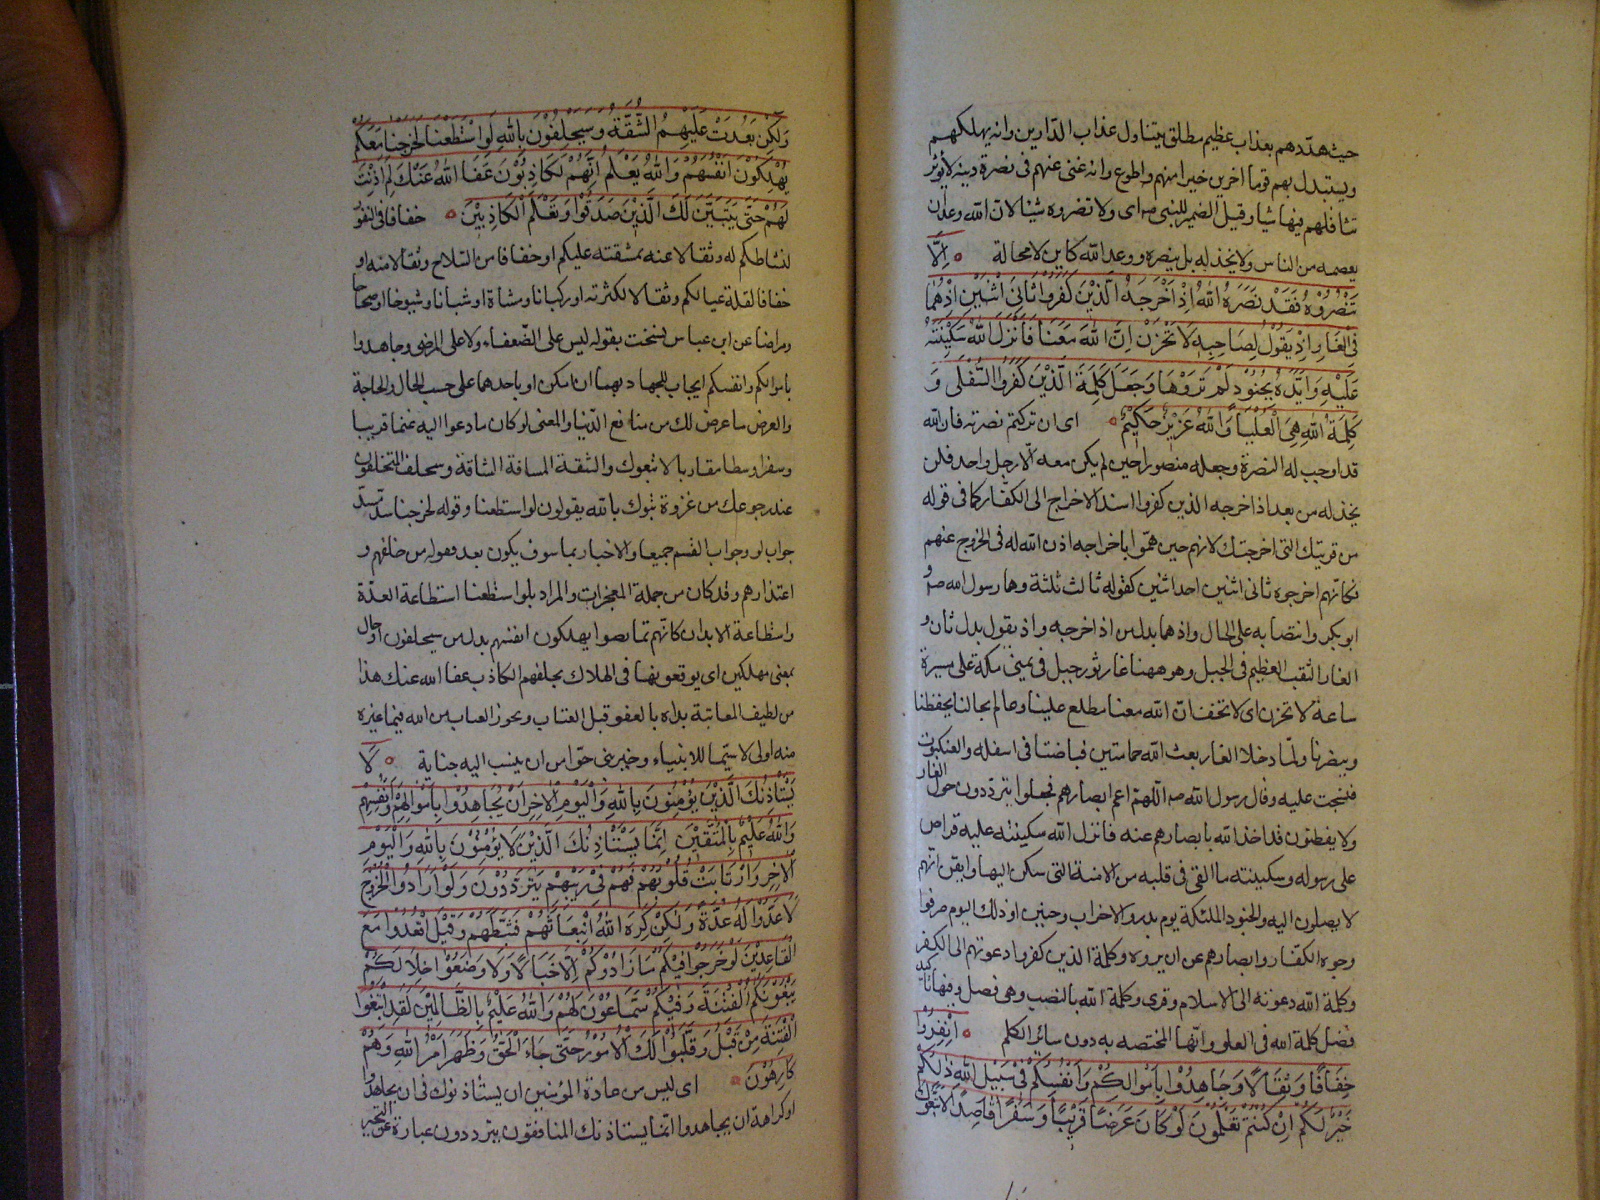 حيث هدّدهم بعذاب عظيم مطلق يتناول عذاب الدّارين وانه يهلكهم
ويستبدل بهم قوما اخرين خيرا منهم واطوع وانه غنى عنهم فى نصرة دينه لا يؤثر
تثاقلهم فيها شيا وقيل الضمير للنبى صه اى ولا تضروه شيا لان الله وعد ان
يعصمه من الناس ولا يخذله بل ينصره ووعد الله كاين لا محالة اِلَّا
تَنْصُرُوْهُ فَقَدْ نَصَرَهُ اللهُ اِذْ اَخْرَجَهُ الَّذِيْنَ كَفَرُوا ثَانِيَ اثْنَيْنِ اِذْ هُمَا
فِى الْغَارِ اِذْ يَقُوْلُ لِصَاحِبِهٖ لَا تَحْزَنْ اِنَّ اللهَ مَعَنَا فَاَنْزَلَ اللهُ سَكِيْنَتَهُ
عَلَيْهِ وَاَيَّدَهُ بِجُنُوْدٍ لَمْ تَرَوْهَا وَجَعَلَ كَلِمَةَ الَّذِيْنَ كَفَرُوا السُّفْلٰى وَ
كَلِمَةُ اللهِ هِيَ الْعُلْيَا وَاللهُ عَزِيْزٌ حَكِيْمٌ اى ان تركتم نصرته فان الله
قد اوجب له النصرة وجعله منصورا حين لم يكن معه الا رجل واحد فلن
يخذله من بعد اذ اخرجه الذين كفروا اسند الاخراج الى الكفّار كما فى قوله
من قريتك التى اخرجتك لانهم حين همّوا باخراجه اذن الله له فى الخروج عنهم
فكانّهم اخرجوه ثانى اثنين احد اثنين كقوله ثالث ثلثة وهما رسول الله صه و
ابو بكر وانتصابه على الحال واذ هما بدل من اذ اخرجه واذ يقول بدل ثان و
الغار الثقب العظيم فى الجبل وهو ههنا غار ثور جبل فى يمنى مكة على مسيرة
ساعة لا تحزن اى لا تخف ان الله معنا مطلع علينا وعالم بحالنا يحفظنا
وينصرنا ولمّا دخلا الغار بعث الله حمامتين فباضتا فى اسفله والعنكبوت
فنسجت عليه وقال رسول الله صه اللهمّ اعم ابصارهم فجعلوا يتردّدون حول الغار
ولا يفطنون قد اخذ الله بابصارهم عنه فانزل الله سكينته عليه قراص
على رسوله وسكينته ما القى فى قلبه من الامنة التى سكن اليها وايقن انّهم
لا يصلون اليه والجنود الملئكة يوم بدر والاحزاب وحنين او ذلك اليوم صرفوا
وجوه الكفّار وابصارهم عن ان يروه وكلمة الذين كفروا دعوتهم الى الكفر
وكلمة الله دعوته الى الاسلام وقرئ وكلمة الله بالنصب وهى فصل وفيها تاكيد
فضل كلمة الله فى العلو وانّها المختصه به دون سائر الكلم اِنْفِرُوا
خِفَافًا وَثِقَالًا وَجَاهِدُوْا بِاَمْوَالِكُمْ وَاَنْفُسِكُمْ فِىْ سَبِيْلِ اللهِ ذٰلِكُمْ
خَيْرٌ لَكُمْ اِنْ كُنْتُمْ تَعْلَمُوْنَ لَوْ كَانَ عَرَضًا قَرِيْبًا وَسَفَرًا قَاصِدًا لَاتَّبَعُوْكَ
وَلٰكِنْ بَعُدَتْ عَلَيْهِمُ الشُّقَّةُ وَسَيَحْلِفُوْنَ بِاللهِ لَوِ اسْتَطَعْنَا لَخَرَجْنَا مَعَكُمْ
يُهْلِكُوْنَ اَنْفُسَهُمْ وَاللهُ يَعْلَمُ اِنَّهُمْ لَكَاذِبُوْنَ عَفَا اللهُ عَنْكَ لِمَ اَذِنْتَ
لَهُمْ حَتّٰى يَتَبَيَّنَ لَكَ الَّذِيْنَ صَدَقُوْا وَتَعْلَمَ الْكَاذِبِيْنَ خفافا فى النفور
لنشاطكم له وثقالا عنه لمشقته عليكم او خفافا من السّلاح وثقالا منه او
خفافا لقلة عيالكم وثقالا لكثرته او ركبانا ومشاة او شبانا وشيوخا او صحاحا
ومراضا عن ابن عباس نسخت بقوله ليس على الضّعفاء ولا على المرضى وجاهدوا
باموالكم وانفسكم ايجاب للجهاد بهما ان امكن او باحدهما على حسب الحال والحاجة
والعرض ما عرض لك من منافع الدّنيا والمعنى لو كان ما دعوا اليه غنما قريبا
وسفرا وسطا مقاربا لاتبعوك والشقة المسافة الشاقة وسيحلف المتخلفون
عند رجوعك من غزوة تبوك بالله يقولون لو استطعنا وقوله لخرجنا سدّ مسدّ
جواب لو وجواب القسم جميعا والاخبار بما سوف يكون بعد قفوله من حلفهم و
اعتذارهم وقد كان من جملة المعجزات والمراد بلو استطعنا استطاعة العدّة
واستطاعة الابدان كانّهم تمارضوا يهلكون انفسهم بدل من سيحلفون او حال
بمعنى مهلكين اى يوقعونها فى الهلاك بحلفهم الكاذب عفا الله عنك هذا
من لطيف المعاتبة بداه بالعفو قبل العتاب ويجوز العتاب من الله فيما غيره
منه اولى لا سيّما للانبياء وخبرنى حق من ان ينسب اليه جناية لَا
يَسْتَاْذِنُكَ الَّذِيْنَ يُؤْمِنُوْنَ بِاللهِ وَالْيَوْمِ الْاٰخِرِ اَنْ يُجَاهِدُوْا بِاَمْوَالِهِمْ وَاَنْفُسِهِمْ
وَاللهُ عَلِيْمٌ بِالْمُتَّقِيْنَ اِنَّمَا يَسْتَاْذِنُكَ الَّذِيْنَ لَا يُؤْمِنُوْنَ بِاللهِ وَالْيَوْمِ
الْاٰخِرِ وَارْتَابَتْ قُلُوْبُهُمْ فَهُمْ فِىْ رَيْبِهِمْ يَتَرَدَّدُوْنَ وَلَوْ اَرَادُوا الْخُرُوْجَ
لَاَعَدُّوْا لَهُ عُدَّةً وَلٰكِنْ كَرِهَ اللهُ انْبِعَاثَهُمْ فَثَبَّطَهُمْ وَقِيْلَ اقْعُدُوْا مَعَ
الْقَاعِدِيْنَ لَوْ خَرَجُوْا فِيْكُمْ مَا زَادُوْكُمْ اِلَّا خَبَالًا وَلَاَوْضَعُوْا خِلَالَكُمْ
يَبْغُوْنَكُمُ الْفِتْنَةَ وَفِيْكُمْ سَمَّاعُوْنَ لَهُمْ وَاللهُ عَلِيْمٌ بِالظَّالِمِيْنَ لَقَدِ ابْتَغَوُا
الْفِتْنَةَ مِنْ قَبْلُ وَقَلَّبُوْا لَكَ الْاُمُوْرَ حَتّٰى جَاءَ الْحَقُّ وَظَهَرَ اَمْرُ اللهِ وَهُمْ
كَارِهُوْنَ اى ليس من عادة المؤمنين ان يستاذنوك فى ان يجاهدوا
او كراهة ان يجاهدوا انّما يستاذنك المنافقون يتردّدون عبارة عن التحير